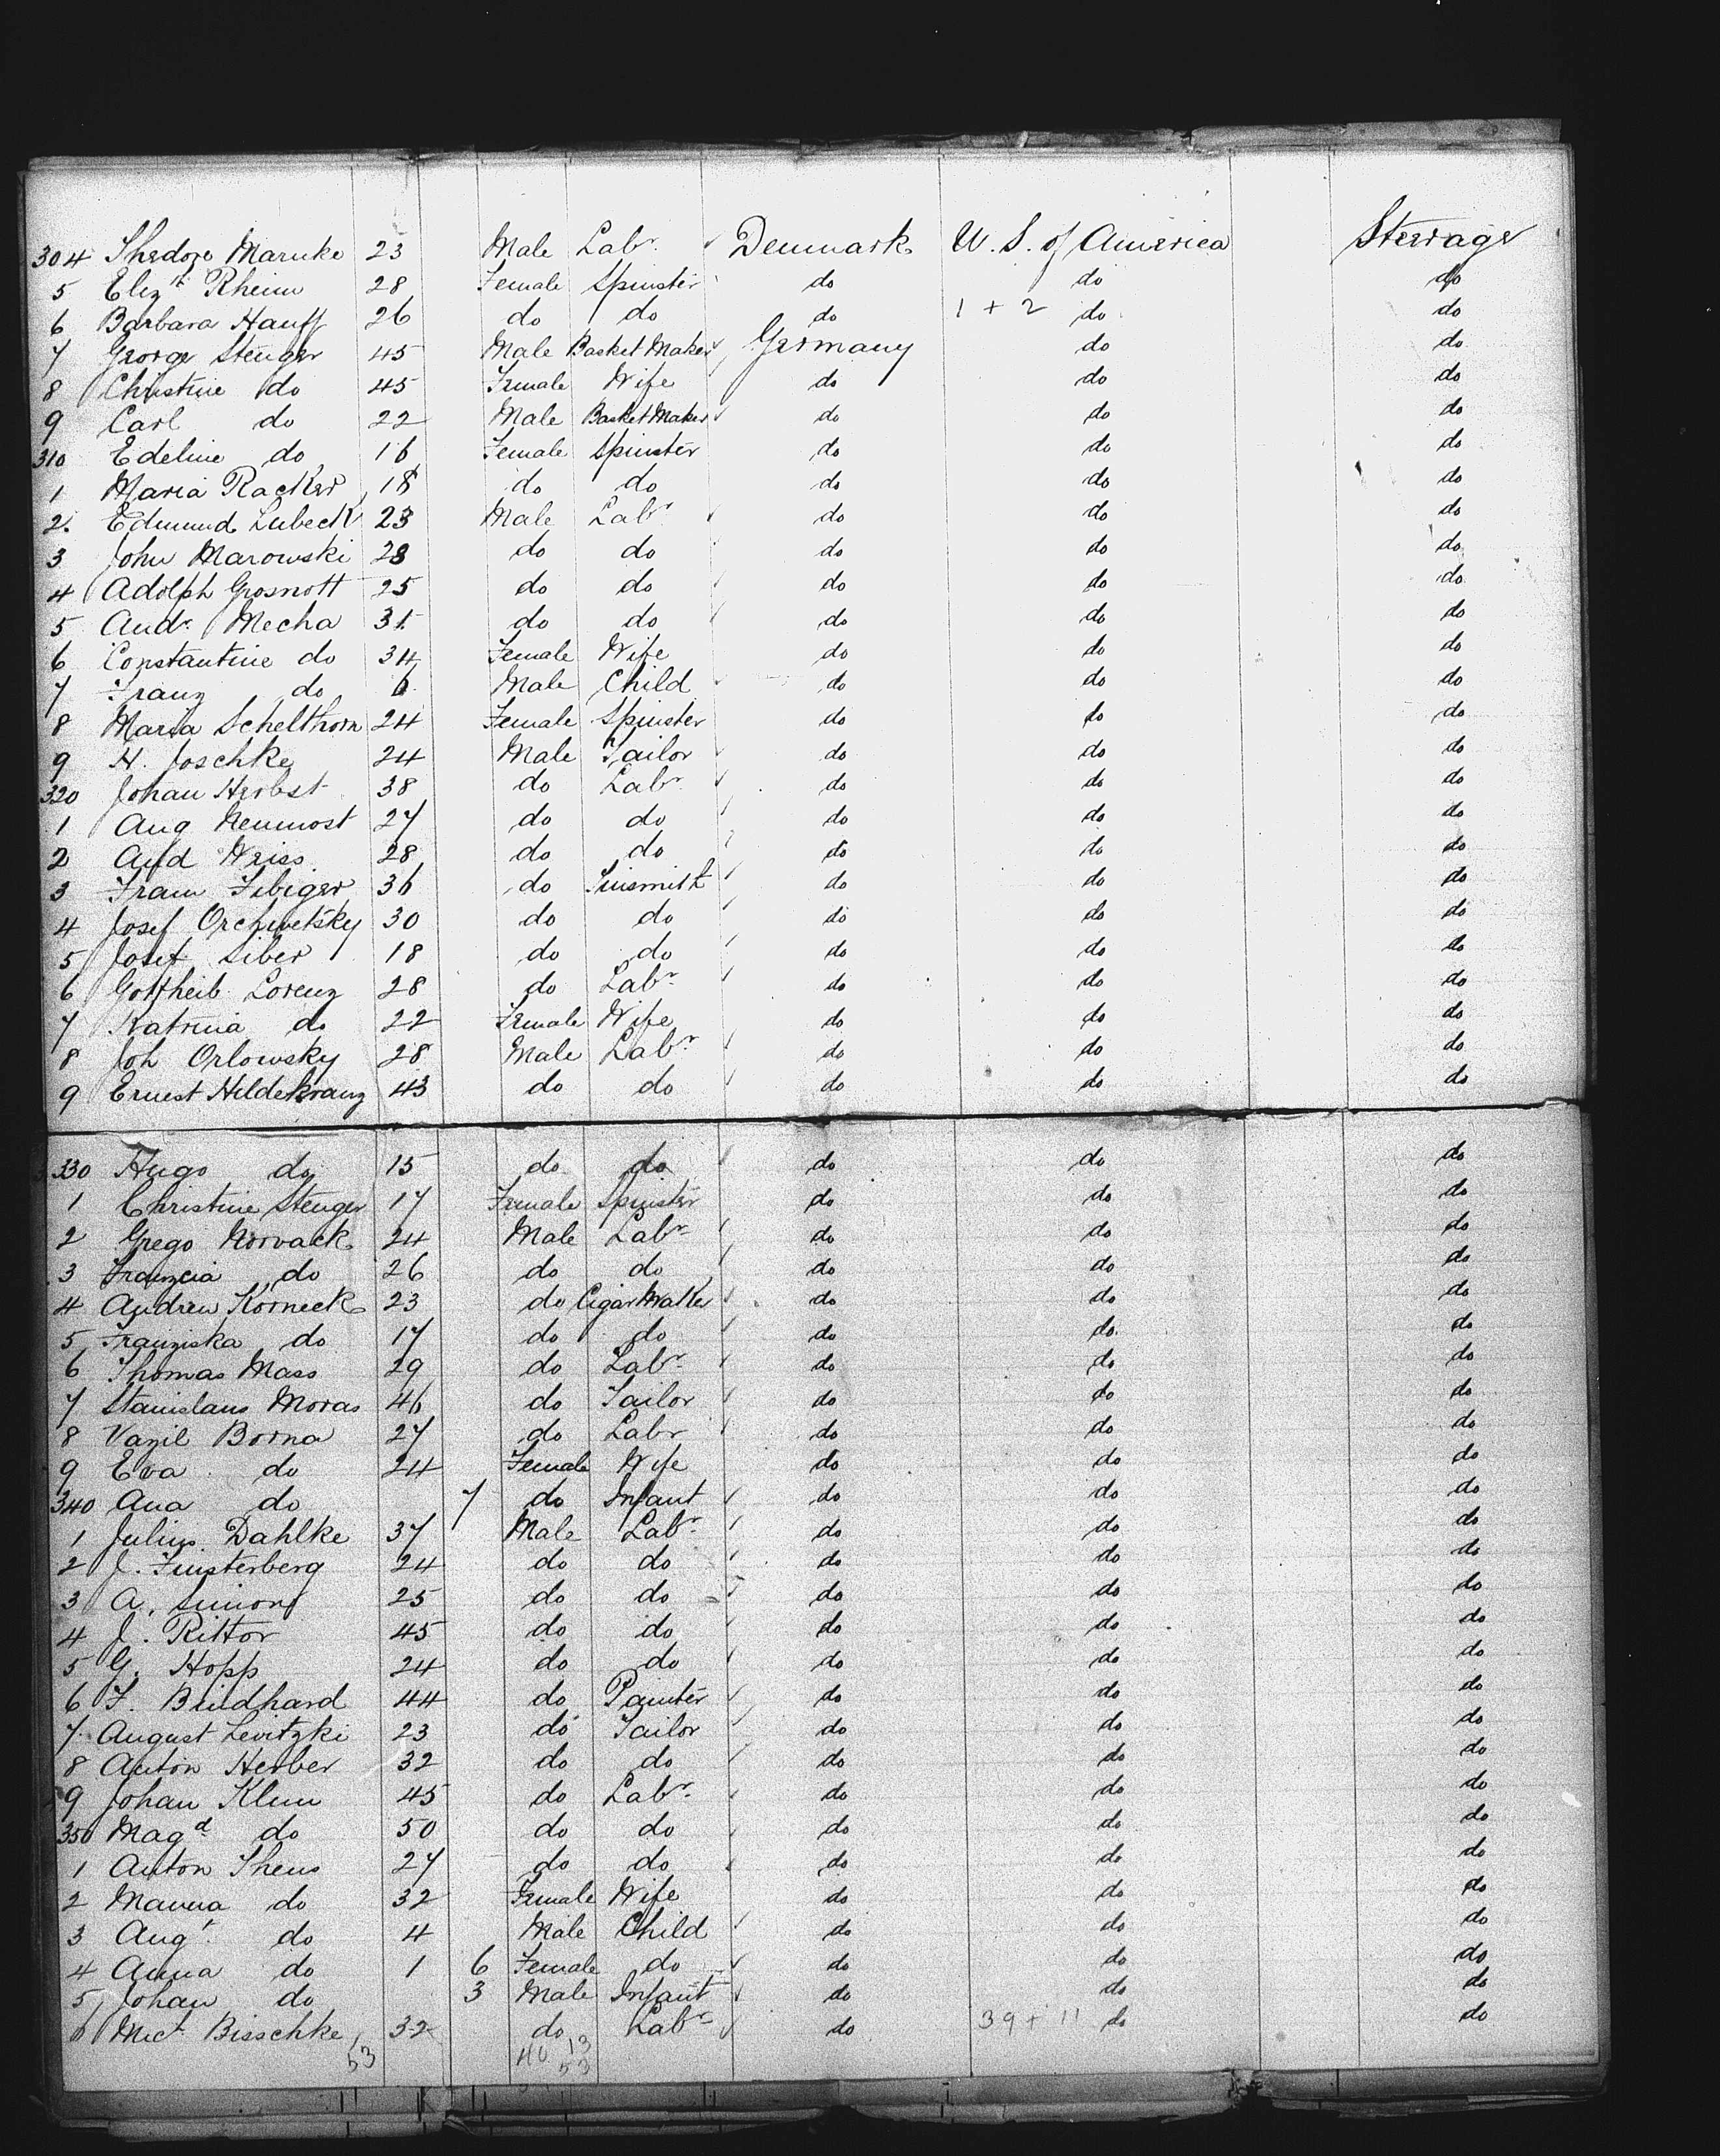 304 Thedore Maruke 23 Male Labr. Denmark U. S. of America Steerage
5 Elizt Rheim 28 Female Spinster do do do
6 Barbara Hauff 26 do do do 1 + 2 do do
7 George Stenger 45 Male Basket Maker Germany do do
8 Christine do 45 Female Wife do do do
9 Carl do 22 Male Basket Maker do do do
310 Edeline do 16 Female Spinster do do do
1 Maria Racker 18 do do do do do
2 Edmund Lubeck 23 Male Labr. do do do
3 John Marowski 28 do do do do do
4 Adolph Grosnott 25 do do do do do
5 Andr. Mecha 31 do do do do do
6 Constantine do 34 Female Wife do do do
7 Franz do 6 Male Child do do do
8 Maria Schelthorn 24 Female Spinster do do do
9 H. Joschke 24 Male Tailor do do do
320 Johan Herbst 38 do Labr. do do do
1 Aug Neumost 27 do do do do do
2 And Weiss 28 do do do do do
3 Franz Fibiger 36 do Tinsmith do do do
4 Josef Orchwetsky 30 do do do do do
5 Josef Siber 18 do do do do do
6 Gottheib Lorenz 28 do Labr. do do do
7 Katrina do 22 Female Wife do do do
8 Joh Orlowsky 28 Male Labr. do do do
9 Ernest Hildekranz 43 do do do do do
330 Hugo do 15 do do do do do
1 Christine Stenger 17 Female Spinster do do do
2 Grego Norvack 24 Male Labr. do do do
3 Franzcia do 26 do do do do do
4 Andrew Korneck 23 do Cigar Maker do do do
5 Franziska do 17 do do do do do
6 Thomas Mass 29 do Labr. do do do
7 Stanislaus Moras 46 do Tailor do do do
8 Vazil Borna 27 do Labr do do do
9 Eva do 24 Female Wife do do do
340 Ana do 7 do Infant do do do
1 Julius Dahlke 37 Male Labr. do do do
2 J. Finsterberg 24 do do do do do
3 A. Simon 25 do do do do do
4 J. Rittor 45 do do do do do
5 G. Hopp 24 do do do do do
6 F. Bindhard 44 do Painter do do do
7 August Levitzki 23 do Tailor do do do
8 Anton Herber 32 do do do do do
9 Johan Klein 45 do Labr. do do do
350 Magd do 50 do do do do do
1 Anton Theus 27 do do do do do
2 Manna do 32 Female Wife do do do
3 Augt. do 4 Male Child do do do
4 Anna do 1 6 Female do do do do
5 Johan do 3 Male Infant do do do
6 Mict Bisschke 32 do Labr do 39 + 11 do do
53 40 13
53